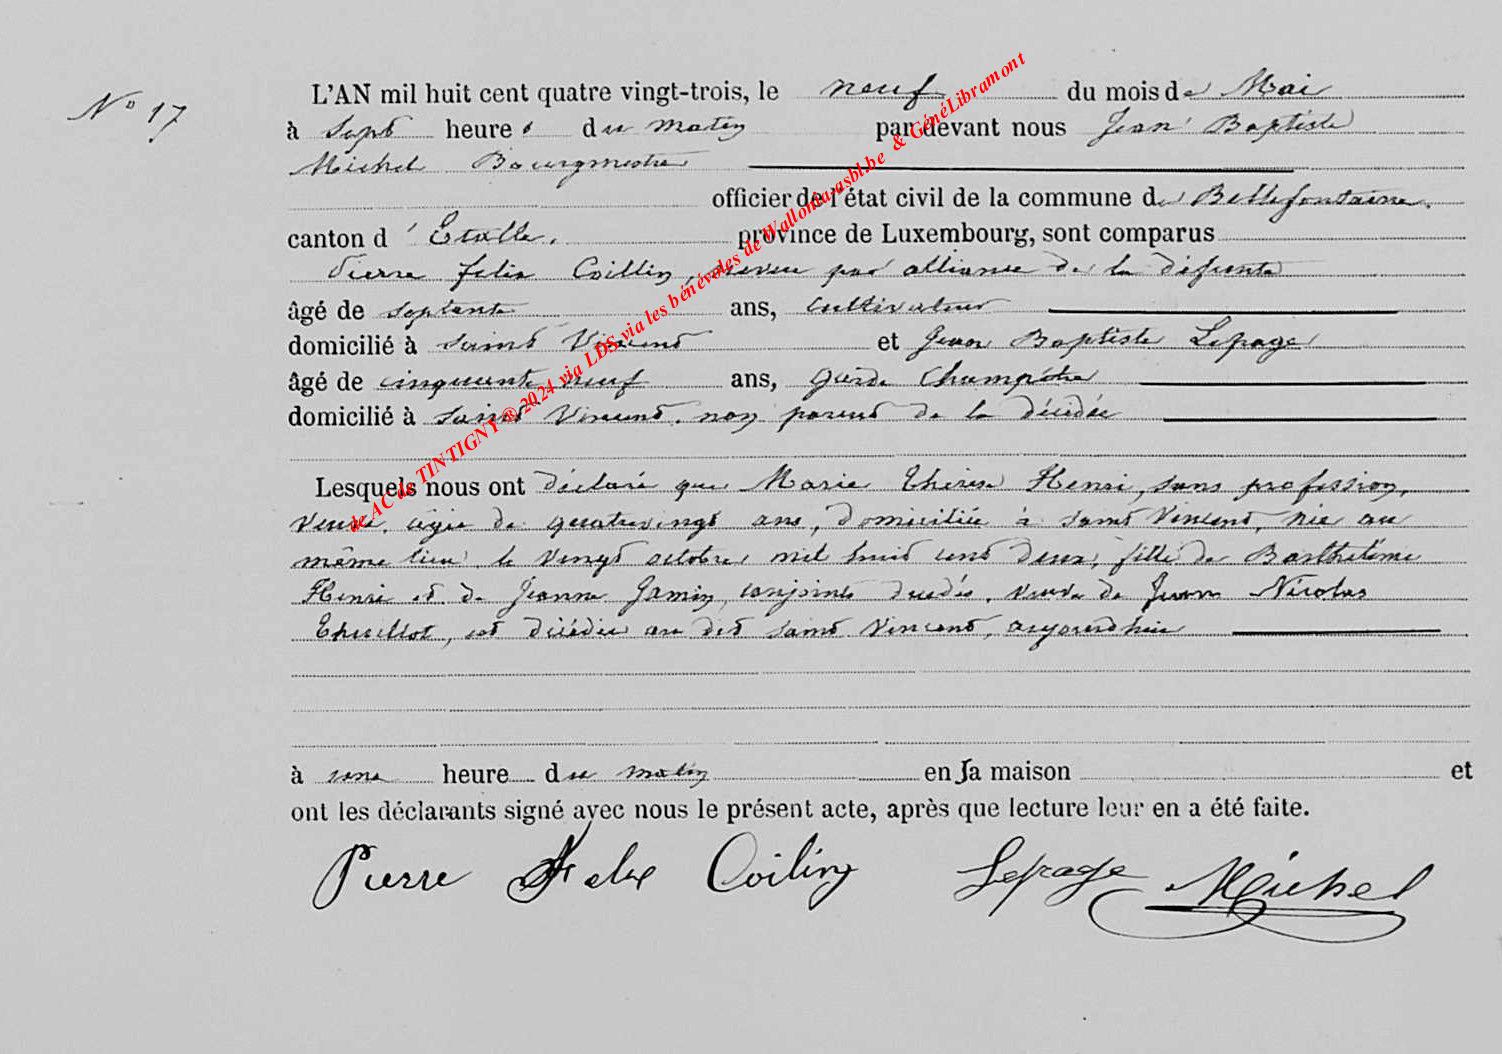 N° 17
L'AN mil huit cent quatre vingt-trois, le neuf du mois de Mai
à sept heures du matin par devant nous Jean Baptiste
Michel Bourgmestre
officier de l'état civil de la commune de Bellefontaine.
canton d'Etalle. province de Luxembourg, sont comparus
Pierre felix Coilling, neveu par alliance de la défunte
âgé de septante ans, cultivateur
domicilié à Saint Vincent et Jean Baptiste Lepage
âgé de cinquante neuf ans, garde Champêtre
domicilié à Saint Vincent. non parent de la décédée
Lesquels nous ont déclaré que Marie Thérèse Henri, sans profession,
veuve, agée de quatrevingt ans, domiciliée à Saint Vincent, née au
même lieu le vingt octobre mil huit cent deux, fille de Barthélémi
Henri et de Jeanne Jamin, conjoints décédés, veuve de Jean Nicolas
Thuillot, est décédée au dit Saint Vincent, aujourd'hui
à une heure du matin en sa maison et
ont les déclarants signé avec nous le présent acte, après que lecture leur en a été faite.
Pierre felix Coiling Lepage Michel
de AC de TINTIGNY ® 2024 via LDS via les bénévoles de Wallonia-asbl.be & GénéLibramont